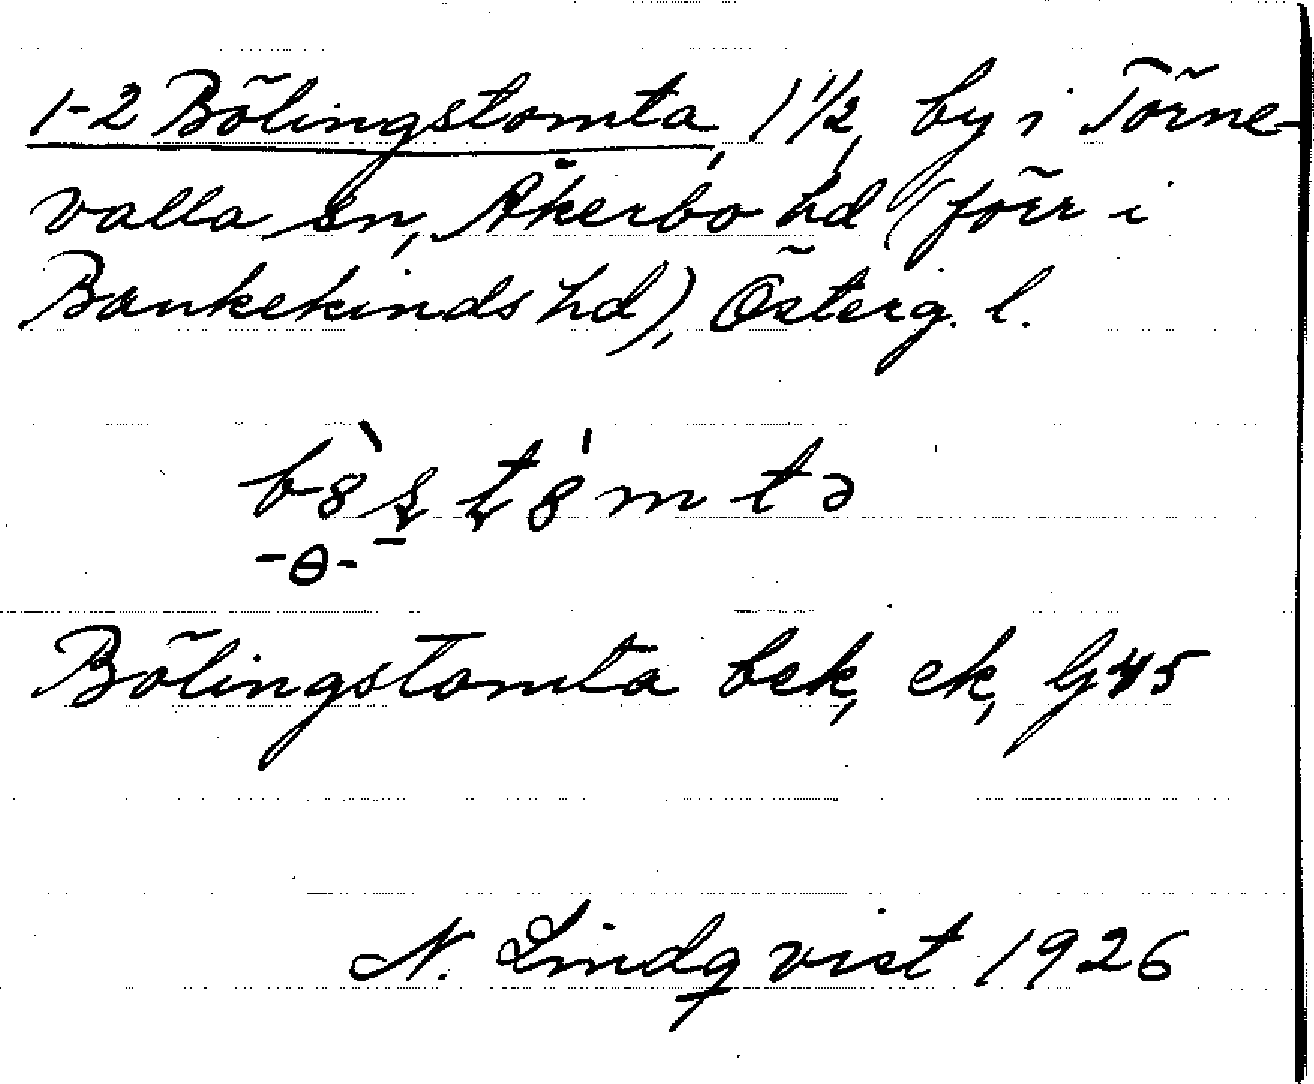 1-2 Bölingstomta, 1 1/2, by i Törne-
valla sn, Åkerbo hd (förr i
Bankekinds hd), Österg. l.
Bölingstomta bek, ek, Gj 45
N. Lindqvist 1926